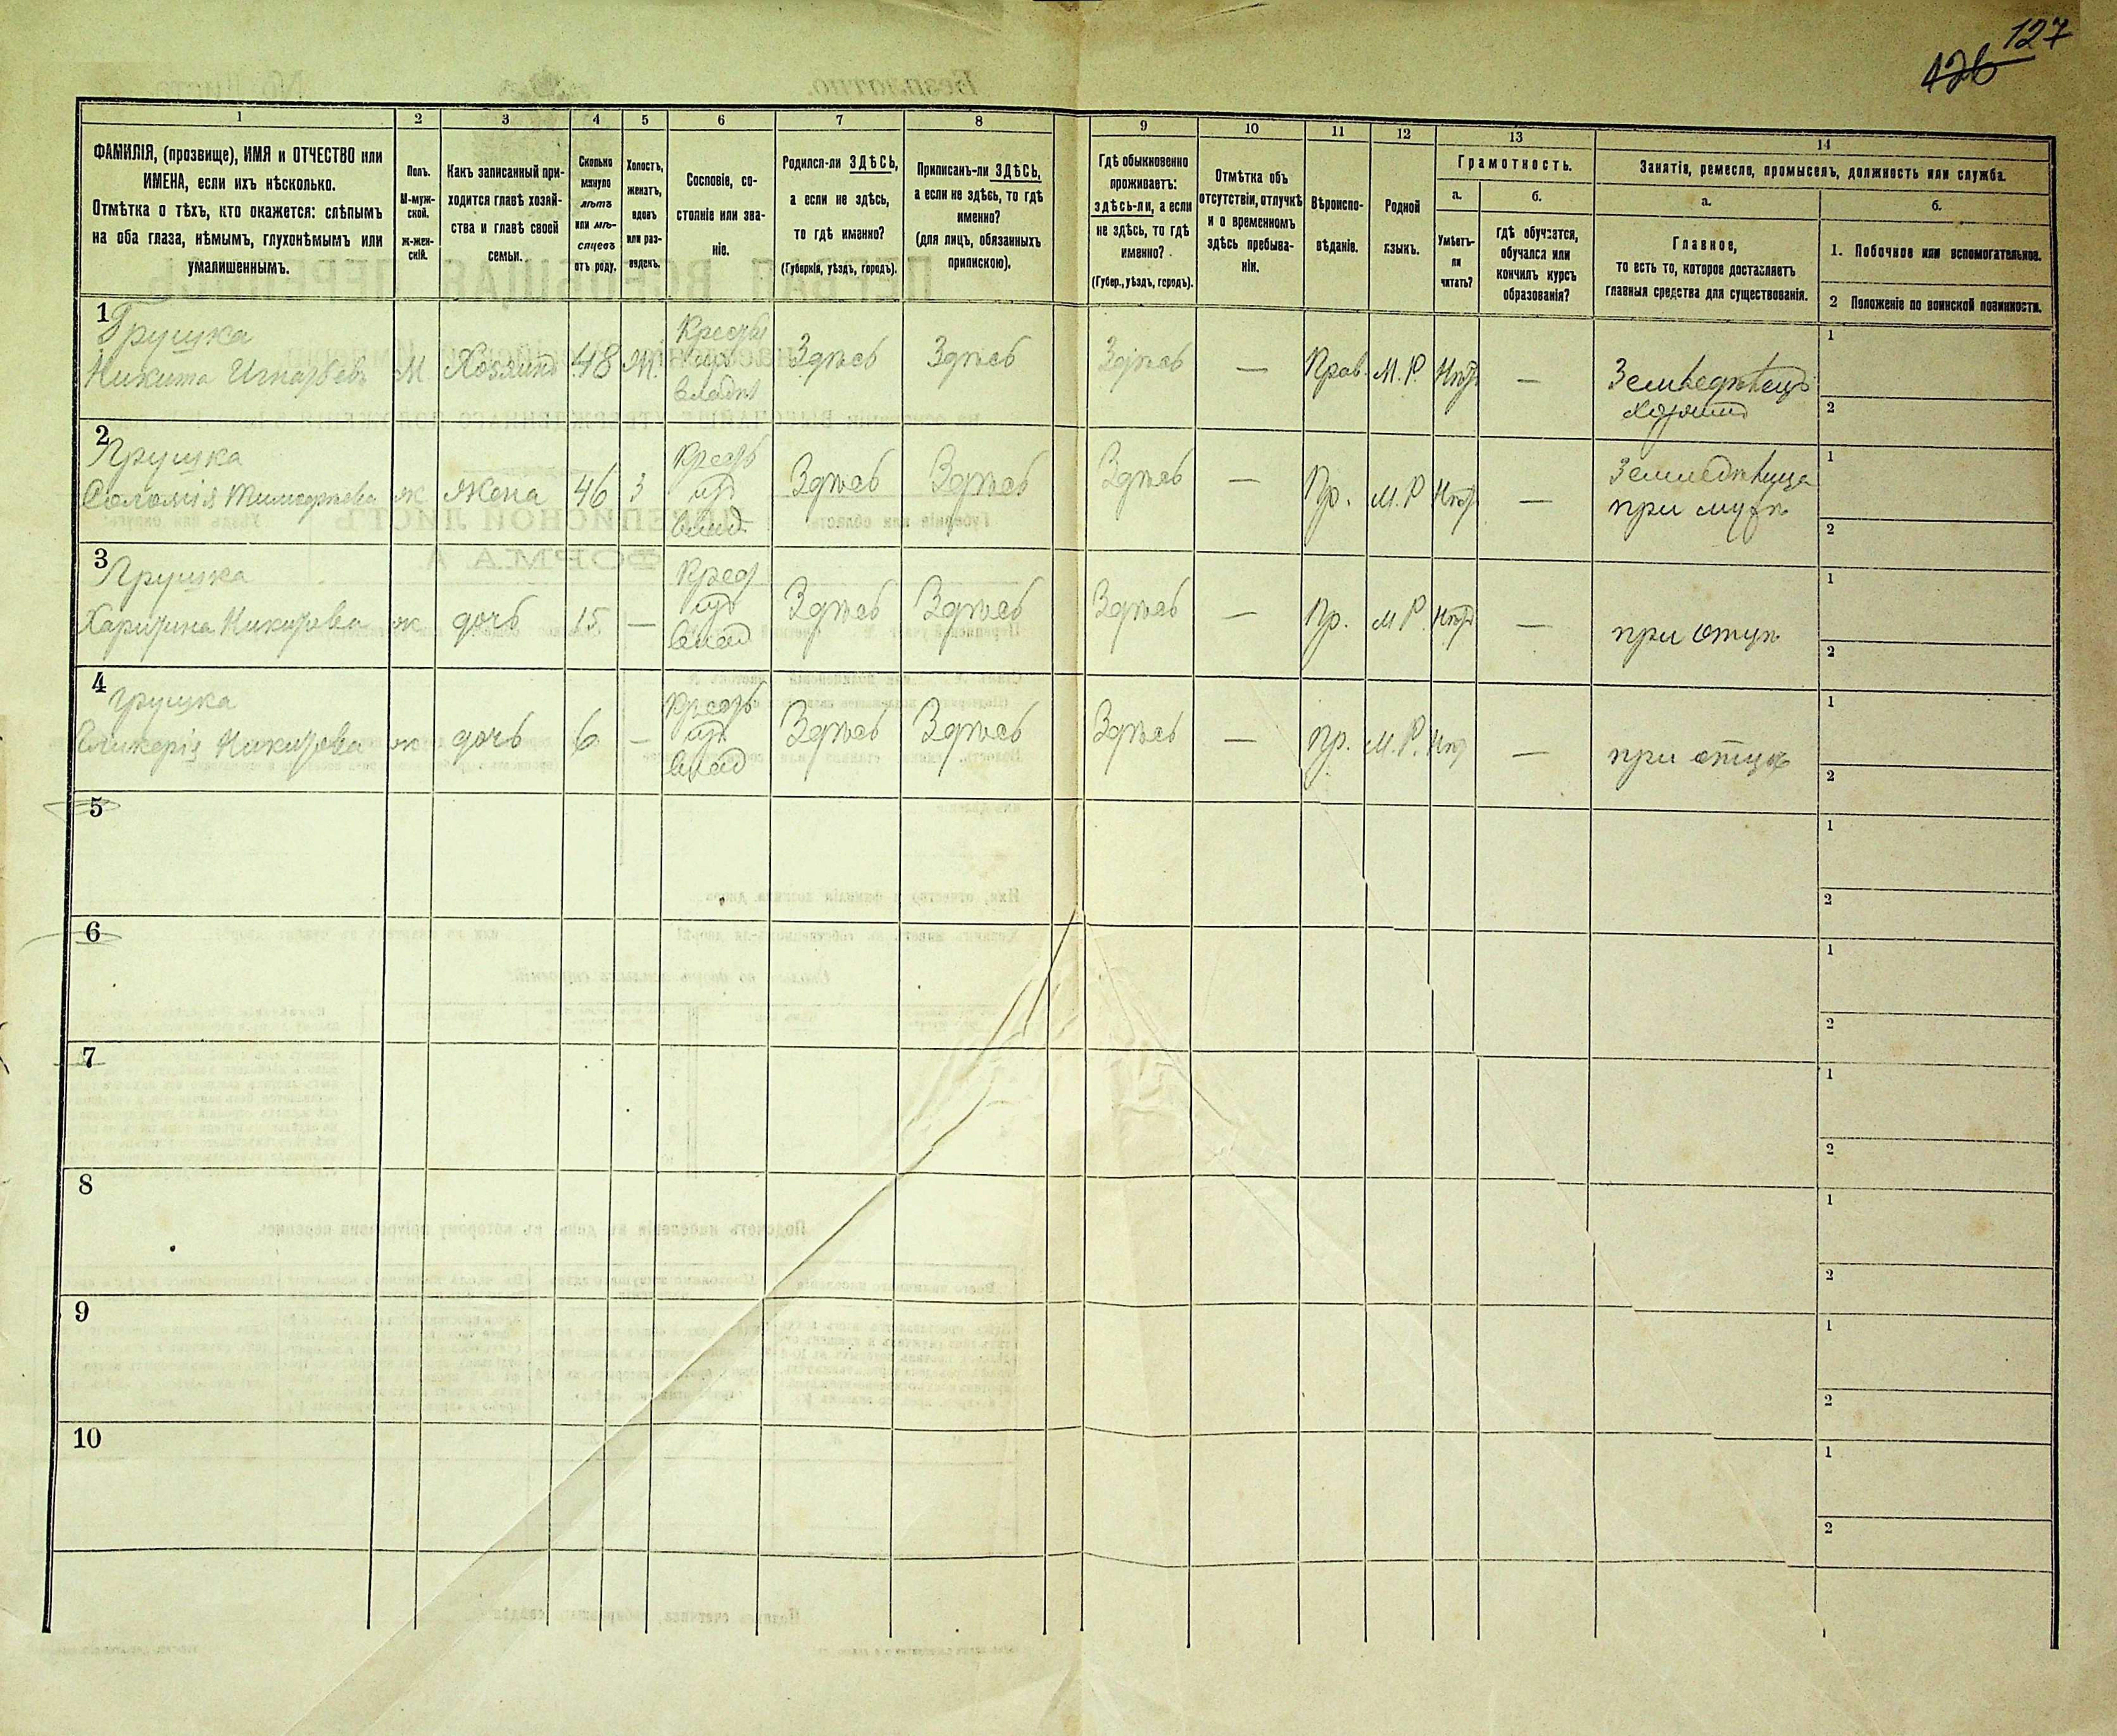 127
126
1
2
3
4
5
6
7
8
9
10
11
12
13
14
ФАМИЛІЯ, (прозвище), ИМЯ и ОТЧЕСТВО или
ИМЕНА, если ихъ нѣсколько.
Отмѣтка о тѣхъ, кто окажется: слѣпымъ
на оба глаза, нѣмымъ, глухонѣмымъ или
умалишеннымъ.
Полъ.
М-муж-
ской.
ж-жен-
скій.
Какъ записанный при-
ходится главѣ хозяй-
ства и главѣ своей
семьи.
Сколько
минуло
лѣтъ
или мѣ-
сяцевъ
отъ роду.
Холостъ,
женатъ,
вдовъ
или раз-
веденъ.
Сословіе, со-
стояніе или зва-
ніе.
Родился-ли ЗДѢСЬ,
а если не здѣсь,
то гдѣ именно?
(Губернія, уѣздъ, городъ).
Приписанъ-ли ЗДѢСЬ,
а если не здѣсь, то гдѣ
именно?
(для лицъ, обязанныхъ
припискою).
Гдѣ обыкновенно
проживаетъ:
здѣсь-ли, а если
не здѣсь, то гдѣ
именно?
(Губер., уѣздъ, городъ).
Отмѣтка объ
отсутствіи, отлучкѣ
и о временномъ
здѣсь пребыва-
ніи.
Вѣроиспо-
вѣданіе.
Родной
языкъ.
Грамотность.
а.
Умѣетъ-
ли
читать?
б.
гдѣ обучается,
обучался или
кончилъ курсъ
образованія?
Занятія, ремесло, промыселъ, должность или служба.
а.
Главное,
то есть то, которое доставляетъ
главныя средства для существованія.
б.
1. Побочное или вспомогательное.
2 Положеніе по воинской повинности.
1
Грушка
Никита Игнатьевъ М Хозяинъ 48 Ж. Здѣсь Здѣсь Здѣсь — Прав. М. Р. Нѣтъ — Земледѣлецъ
хозяинъ
1
2
2
Грушка
Соломія Тимофѣева ж жена 46 З Здѣсь Здѣсь Здѣсь — Пр. М. Р. Нѣтъ — Земледѣлица
при мужѣ
1
2
3
Грушка
Харитина Никитова ж дочь 15 — Здѣсь Здѣсь Здѣсь — Пр. М. Р. Нѣтъ — при отцѣ
1
2
4
Грушка
Гликерія Никитова ж дочь 6 — Здѣсь Здѣсь Здѣсь — Пр. М. Р. Нѣтъ — при отцѣ
1
2
5
1
2
6
1
2
7
1
2
8
1
2
9
1
2
10
1
2